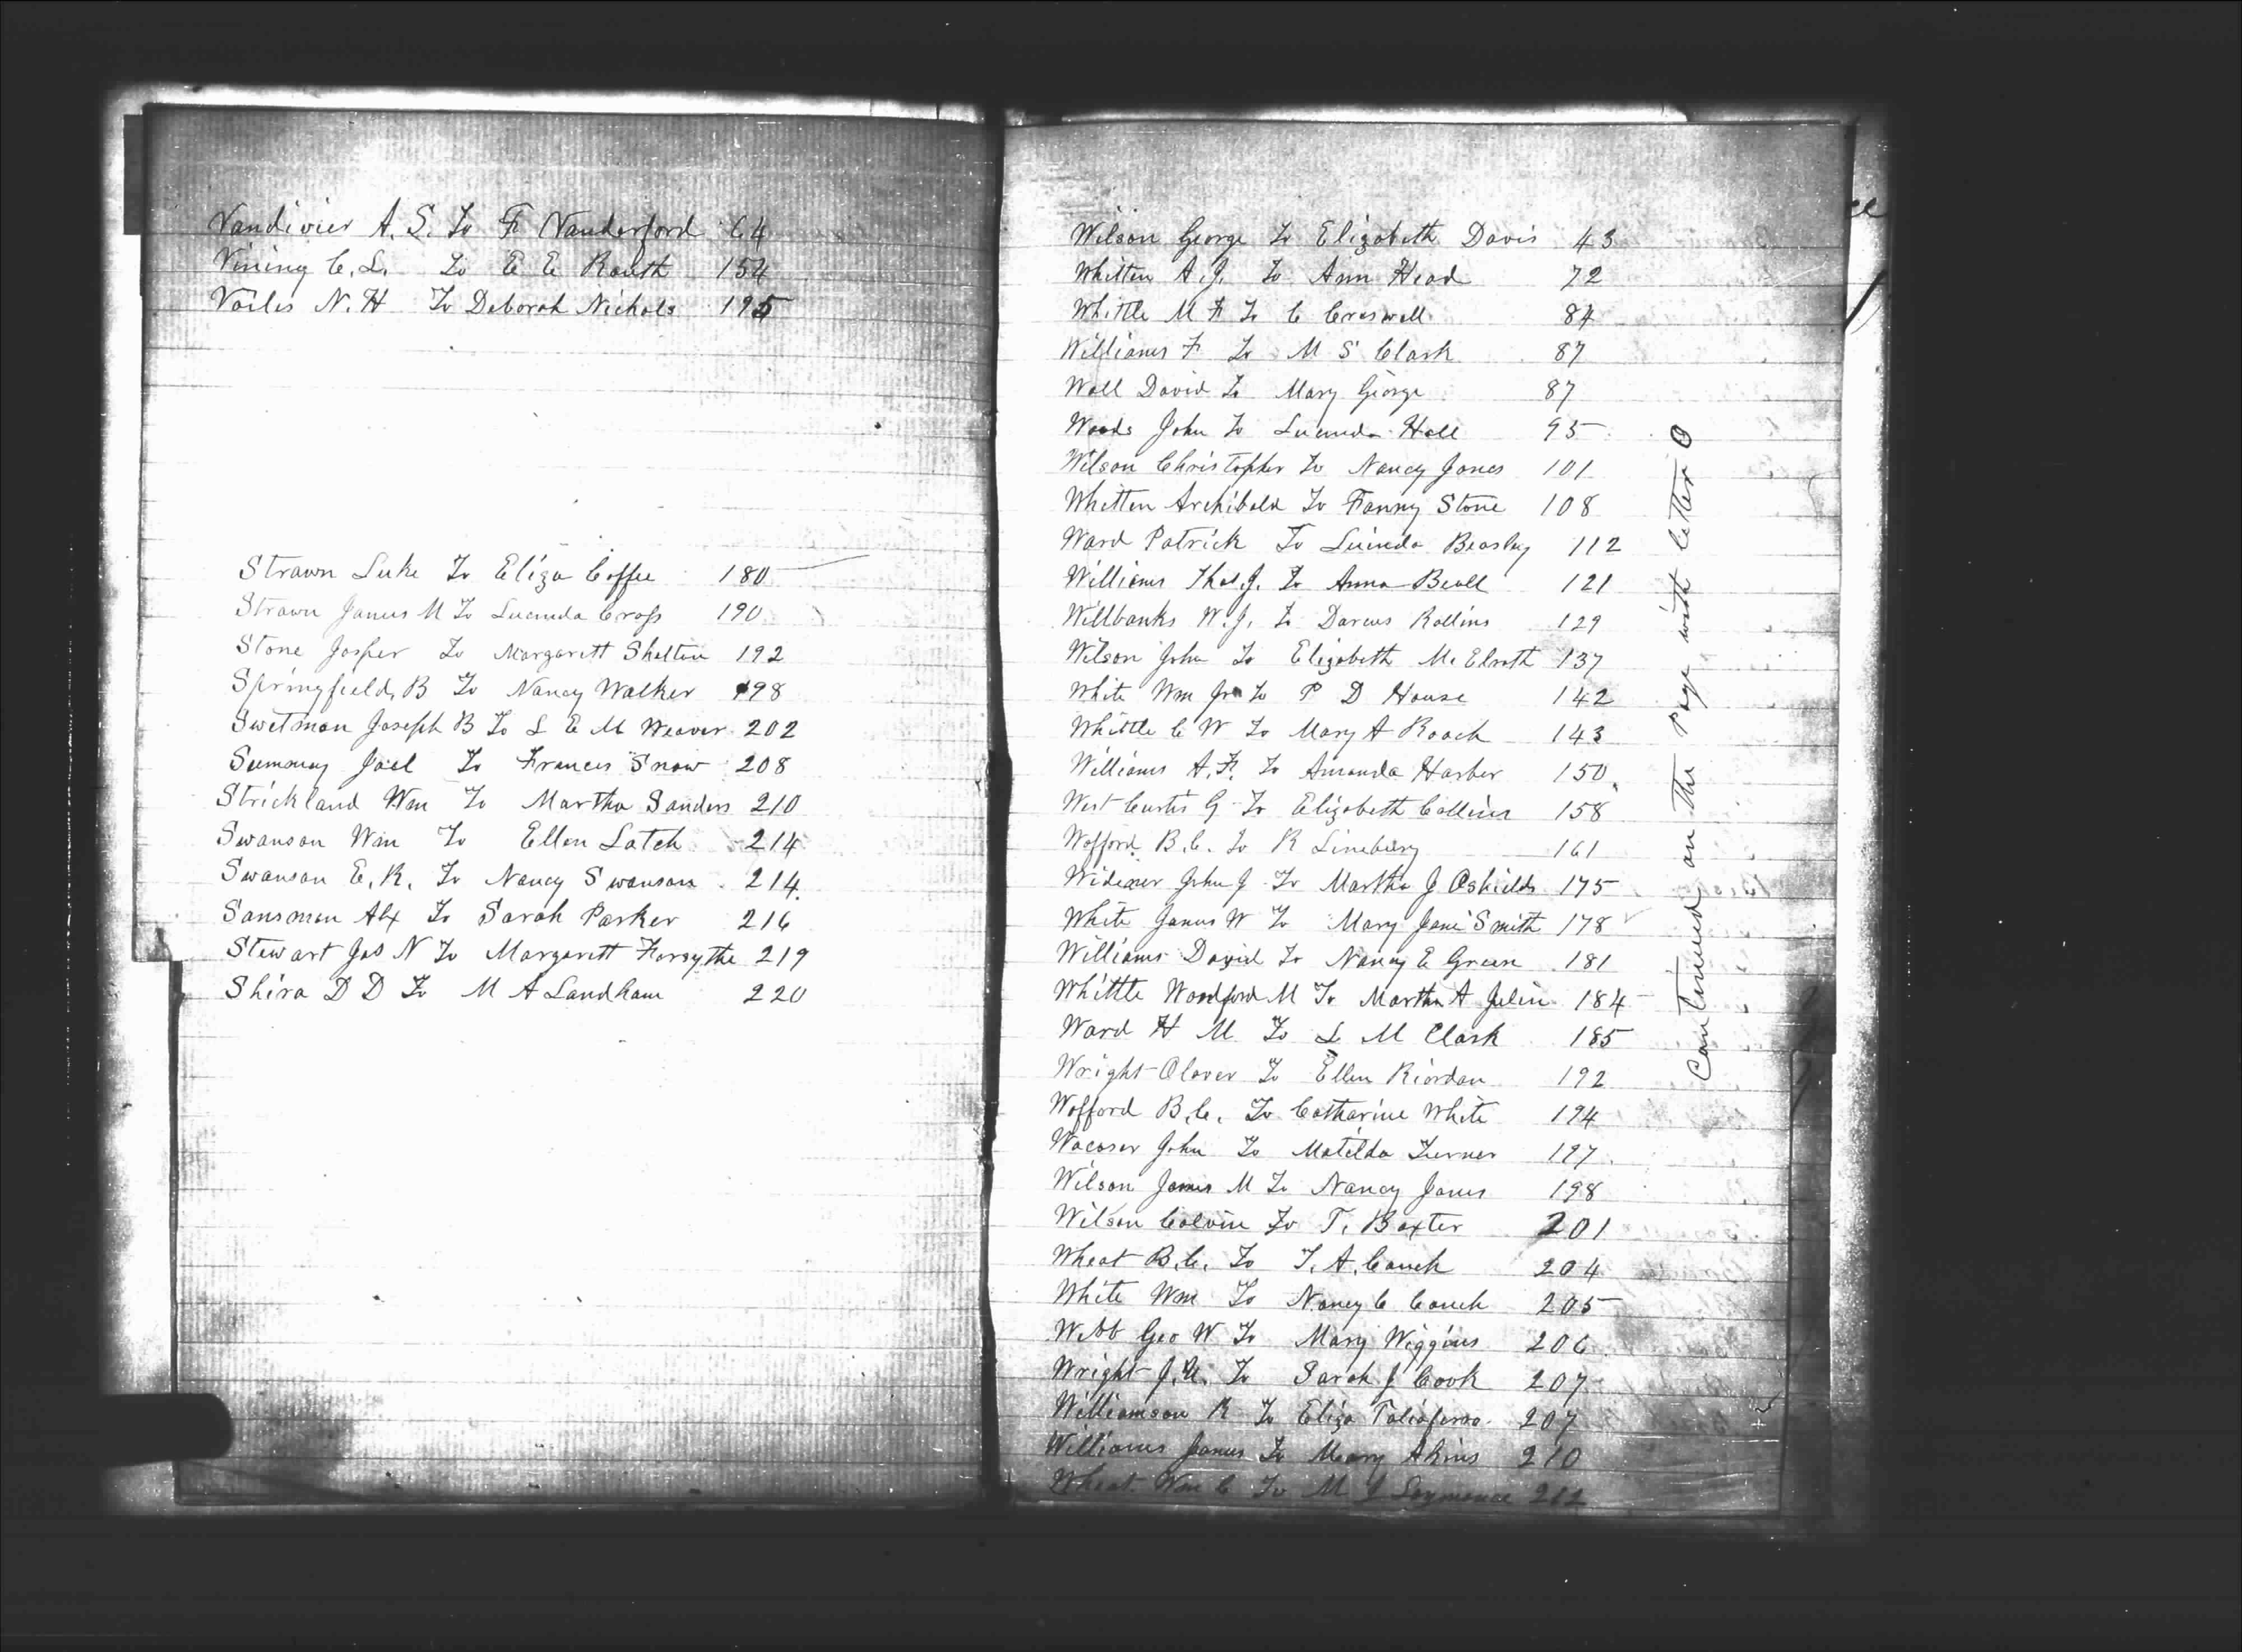 Vandivier A. S. To F Vanderford 64
Vining C. L. To E E Routh 154
Voiles N. H To Deborah Nichols 195
Strawn Luke To Eliza Coffee 180
Strawn James M To Lucinda Cross 190
Stone Jasper To Margarett Shelton 192
Springfield, B To Nancy Walker 198
Swetman Joseph B To L E M Weaver 202
Summey Joel To Frances Snow 208
Strickland Wm To Martha Sanders 210
Swanson Wm To Ellen Latch 214
Swanson E. R. To Nancy Swanson 214
Sansman Alx To Sarah Parker 216
Stewart Jas N To Margarett Forsythe 219
Shira D D To M A Landham 220
Wilson George To Elizabeth Davis 43
Whitten A. J. To Ann Head 72
Whittle M F To C Creswell 84
Williams F To M S Clark 87
Wall David To Mary George 87
Woods John To Lucinda Hall 95
Wilson Christopher To Nancy Jones 101
Whitten Archibald To Fanny Stone 108
Ward Patrick To Lucinda Beasley 112
Williams Thos. J. To Anna Beall 121
Willbanks W. J. To Darcus Rollins 129
Wilson John To Elizabeth McElrath 137
White Wm Jr To P D House 142
Whittle C W To Mary A Roach 143
Williams A. F. To Amanda Harber 150
West Curtis G To Elizabeth Collins 158
Wofford B. C. To R Lineburg 161
Widener John J To Martha J Oshields 175
White James W To Mary Jane Smith 178
Williams David To Nancy E Green 181
Whittle Woodford M To Martha A Julin 184
Ward H M To L M Clark 185
Wright Olover To Ellen Riordan 192
Wofford B. C. To Catharine White 194
Wacaser John To Matilda Turner 197
Wilson James M To Nancy Jones 198
Wilson Calvin To T. Baxter 201
Wheat B. C. To T. A. Couch 204
White Wm To Nancy C Couch 205
Webb Geo W To Mary Wiggins 206
Wright J. To Sarah J Cook 207
Williamson R To Eliza Taliaferro 207
Williams James To Mary Akins 210
Wheat Wm C To M J 212
Continued on the Page with letter O